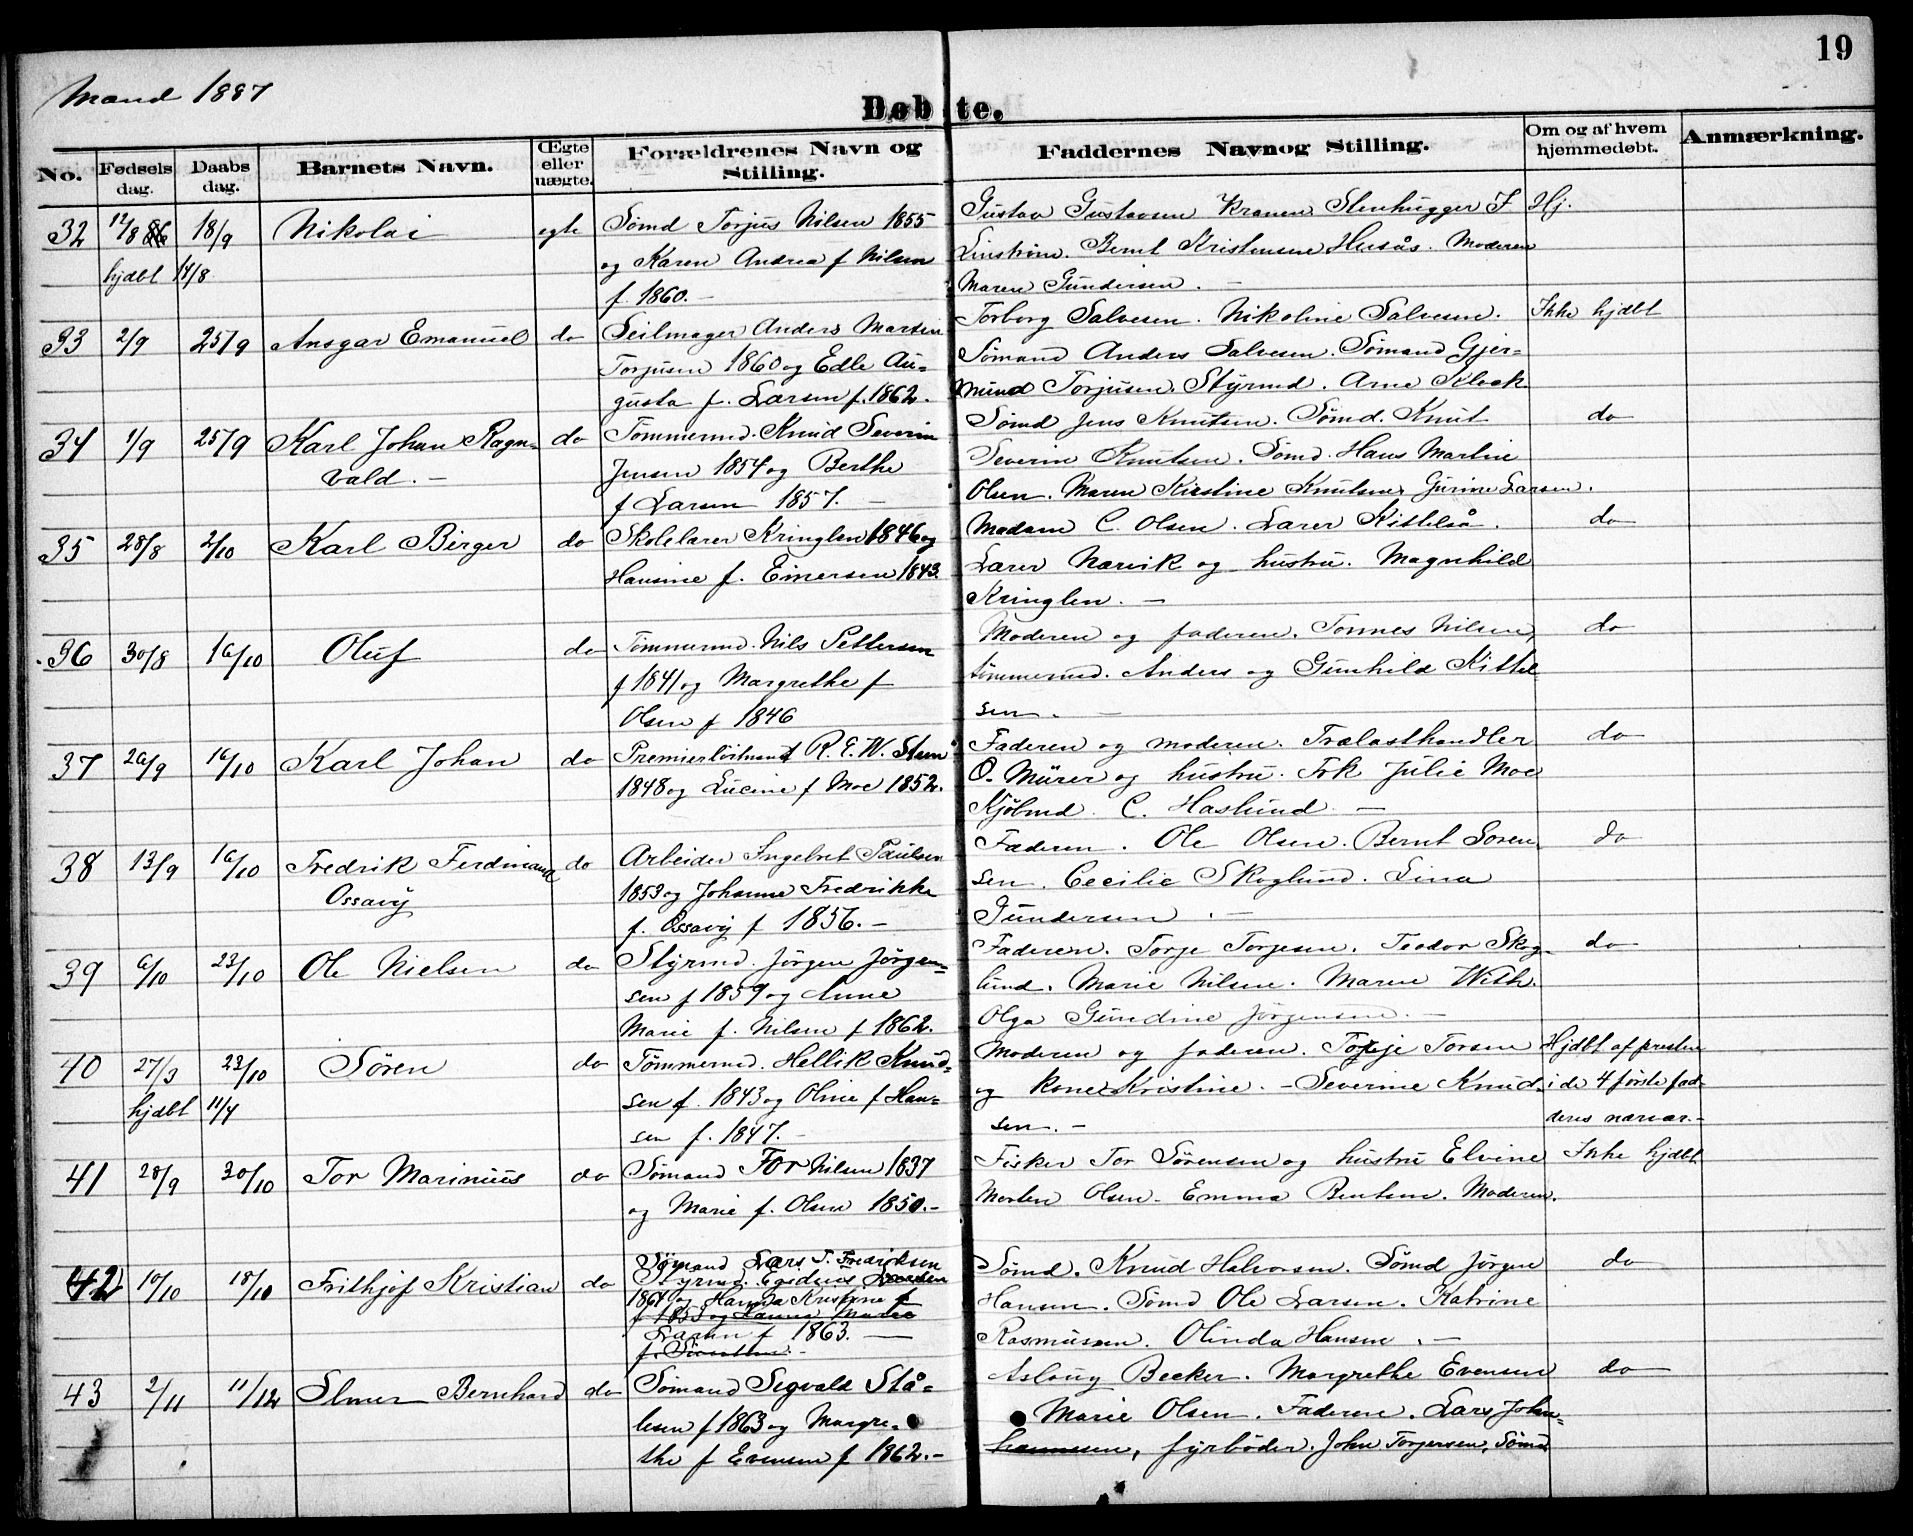 19
Mand 1887
Døbte.
No.
Fødsels
dag.
Daabs
dag.
Barnets Navn.
Ægte
eller
uægte.
Forældrenes Navn og
Stilling.
Faddernes Navn og Stilling.
Om og af hvem
hjemmedøbt.
Anmærkning.
32 12/8 86 18/9 Nikolai egte Sømd Torjus Nilsen 1855 Gustav Gustavsen Kranen Stenhugger F Hj.
hjdbt 14/8 og Karen Andrea f Nilsen Linström. Bernt Kristensen Husås. Moderen
f. 1860.- Maren Gundersen. -
33 2/9 25/9 Ansgar Emanuel do Seilmager Anders Marten Torborg Salvesen. Nikoline Salvesen. Ikke hjdbt
Torjusen 1860 og Edle Au- Sømand Anders Salvesen. Sømand Gjer-
gusta f. Larsen f. 1862. mund Torjusen. Styrmd. Arne Kleek
34 1/9 25/9 Karl Johan Ragn- do Tømmermd. Knud Severin Sømd Jens Knutsen. Sømd. Knut do
vald. - Jensen 1854 og Berthe Severin Knutsen. Sømd. Hans Martin
f Larsen 1857. - Olsen. Maren Kirstine Knutsen, Gurine Larsen.
35 28/8 2/10 Karl Birger do Skolelærer Kringlen 1846 og Madam C. Olsen. Lærer Kittelså. do
Hansine f. Einersen 1843. Lærer Narvik og hustru. Magnhild
Kringlen. -
36 30/8 16/10 Oluf do Tømmermd. Nils Pettersen Moderen og faderen. Tønnes Nilsen, do
f 1841 og Margrethe f tømmermd. Anders og Gunhild Kittel
Olsen f 1846 sen. -
37 26/9 16/10 Karl Johan do Premierløitnant R. E. W. Steen Faderen og moderen. Trælasthandler do
1848 og Lucine f Moe 1852. O. Mürer og hustru. Frk Julie Moe
Kjøbmd. C. Haslund. -
38 13/9 16/10 Fredrik Ferdinand do Arbeider Ingebret Paulsen Faderen. Ole Olsen. Bernt Soren do
Ossavy 1853 og Johanne Fredrikke sen. Cecilie Skoglund. Lina
f. Ossavy f 1856. - Gundersen. -
39 6/10 23/10 Ole Nielsen do Styrmd. Jørgen Jørgen- Faderen. Torje Torjesen. Teodor Skog- do
sen f 1859 og Anne lund. Marie Nilsen. Maren With.
Marie f. Nilsen f 1862. Olga Gundine Jørgensen. -
40 27/3 23/10 Søren do Tømmermd. Hellik Knud- Moderen og faderen. Torje Torsen Hjdbt af presten
hjdbt 11/4 sen f. 1843 og Oline f Han- og kone Kristine. - Severine Knud- i de 4 første fad-
sen f. 1847. - sen. - deres nærvær. -
41 28/9 30/10 Tor Marinius do Sømand Tor Nilsen 1837 Fisker Tor Sørensen og hustru Elvine Ikke hjdbt
og Marie f. Olsen 1850. - Morten Olsen. Emma Bentsen. Moderen.
42 10/10 18/10 Frithjof Kristian do Sømand Lars T. Fredriksen Sømd. Knud Halvorsen. Sømd Jørgen do
1864 og Hanna Kristine f Hansen. Sømd Ole Larsen. Katrine
Larsen f 1863. - Rasmussen. Olinda Hansen. -
43 2/11 11/12 Elmer Bernhard do Sømand Segvald Stå- Aslaug Becker. Margrethe Evensen do
lesen f 1863 og Margre- Marie Olsen. Faderen. Lars Johan-
the f Evensen f 1862. - fyrbøder. John Torjersen, Sømd